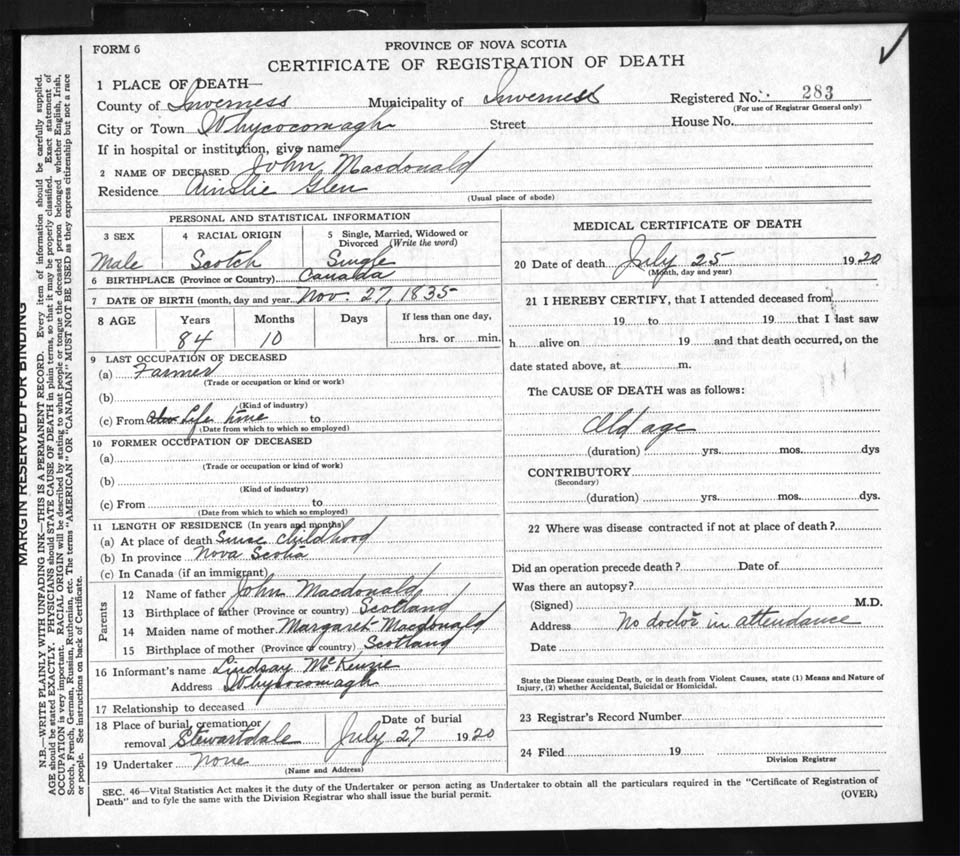 FORM 6
PROVINCE OF NOVA SCOTIA
CERTIFICATE OF REGISTRATION OF DEATH
1 PLACE OF DEATH—
County of Inverness Municipality of Inverness Registered No. 283
(For use of Registrar General only)
City or Town Whycocomagh Street House No.
If in hospital or institution, give name
2 NAME OF DECEASED John Macdonald
Residence Ainslie Glen
(Usual place of abode)
PERSONAL AND STATISTICAL INFORMATION
3 SEX 4 RACIAL ORIGIN 5 Single, Married, Widowed or Divorced (Write the word)
Male Scotch Single
6 BIRTHPLACE (Province or Country) Canada
7 DATE OF BIRTH (month, day and year) Nov. 27, 1835
8 AGE Years Months Days If less than one day,
84 10 hrs. or min.
9 LAST OCCUPATION OF DECEASED
(a) Farmer
(Trade or occupation or kind or work)
(b)
(Kind of industry)
(c) From Life time to
(Date from which to which so employed)
10 FORMER OCCUPATION OF DECEASED
(a)
(Trade or occupation or kind of work)
(b)
(Kind of industry)
(c) From to
(Date from which to which so employed)
11 LENGTH OF RESIDENCE (In years and months)
(a) At place of death Since childhood
(b) In province Nova Scotia
(c) In Canada (if an immigrant)
Parents
12 Name of father John Macdonald
13 Birthplace of father (Province or country) Scotland
14 Maiden name of mother Margaret Macdonald
15 Birthplace of mother (Province of country) Scotland
16 Informant's name Lindsay McKenzie
Address Whycocomagh
17 Relationship to deceased
18 Place of burial, cremation or Date of burial
removal Stewartdale July 27 1920
19 Undertaker none
(Name and Address)
MEDICAL CERTIFICATE OF DEATH
20 Date of death July 25 1920
(Month, day and year)
21 I HEREBY CERTIFY, that I attended deceased from
19 to 19 that I last saw
h alive on 19 and that death occurred, on the
date stated above, at m.
The CAUSE OF DEATH was as follows:
Old age
(duration) yrs. mos. dys
CONTRIBUTORY
(Secondary)
(duration) yrs. mos. dys.
22 Where was disease contracted if not at place of death?
Did an operation precede death? Date of
Was there an autopsy?
(Signed) M.D.
Address No doctor in attendance
Date
State the Disease causing Death, or in death from Violent Causes, state (1) Means and Nature of
Injury, (2) whether Accidental, Suicidal or Homicidal.
23 Registrar's Record Number
24 Filed 19
Division Registrar
SEC. 46—Vital Statistics Act makes it the duty of the Undertaker or person acting as Undertaker to obtain all the particulars required in the "Certificate of Registration of
Death" and to fyle the same with the Division Registrar who shall issue the burial permit. (OVER)
MARGIN RESERVED FOR BINDING
N.B.—WRITE PLAINLY WITH UNFADING INK—THIS IS A PERMANENT RECORD. Every item of information should be carefully supplied.
AGE should be stated EXACTLY. PHYSICIANS should STATE CAUSE OF DEATH in plain terms, so that it may be properly classified. Exact statement of
OCCUPATION is very important. RACIAL ORIGIN will be described by stating to what people or tongue the deceased person belonged whether English, Irish,
Scotch, French, German, Russian, Ruthenian, etc. The terms "AMERICAN" OR "CANADIAN" MUST NOT BE USED as they express citizenship but not a race
or people. See instructions on back of Certificate.